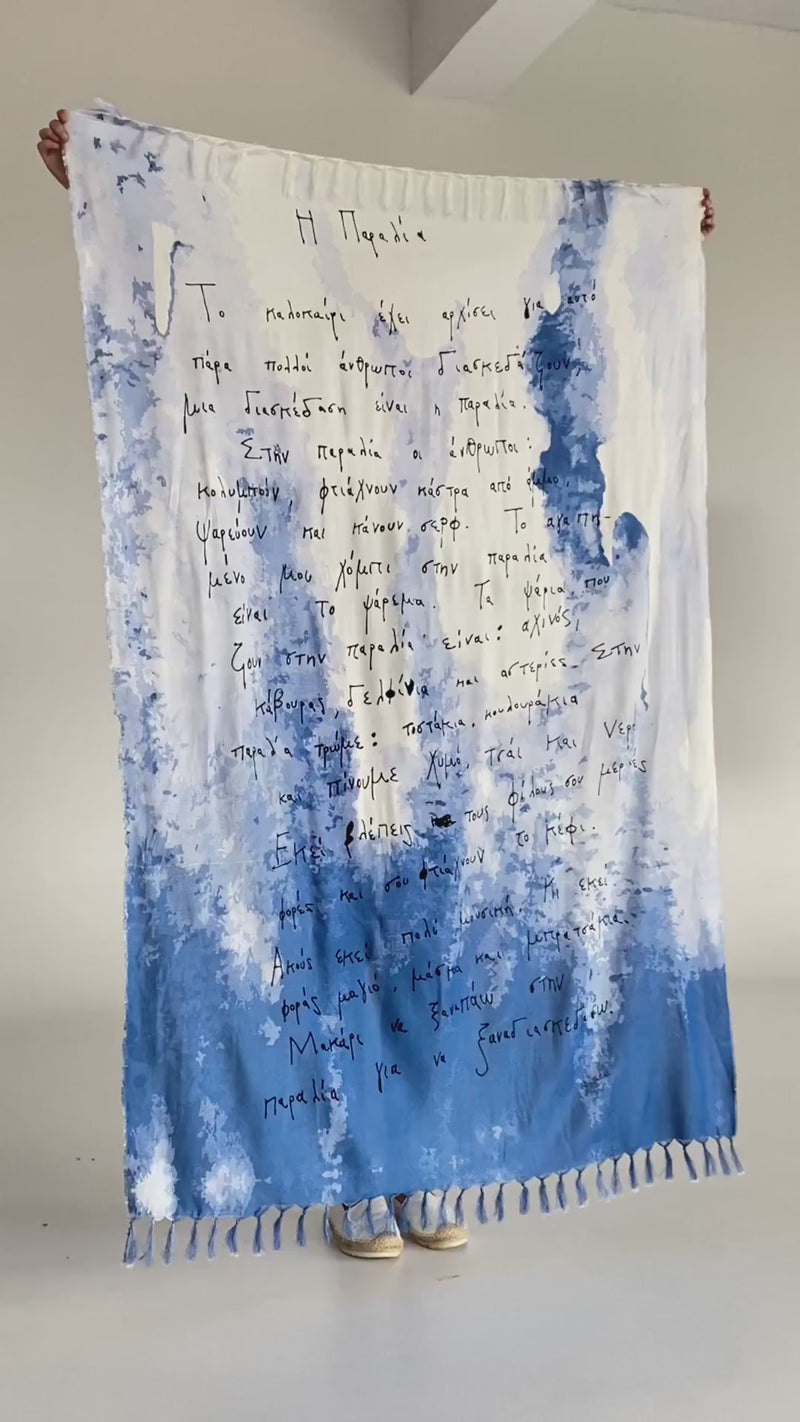 Η Παραλία
Το καλοκαίρι έχει αρχίσει για αυτό
πάρα πολλοί άνθρωποι διασκεδάζουν,
μια διασκέδαση είναι η παραλία.
Στην παραλία οι άνθρωποι:
κολυμπούν, φτιάχνουν κάστρα από άμμο,
ψαρεύουν και κάνουν σερφ. Το αγαπη-
μένο μου χόμπι στην παραλία
είναι το ψάρεμα. Τα ψάρια που
ζουν στην παραλία είναι: αχινός,
κάβουρας, δελφίνια και αστερίες. Στην
παραλία τρώμε: τοστάκια, κουλουράκια
και πίνουμε χυμό, τσάι και νερό
Εκεί βλέπεις τους φίλους σου μερικές
φορές και σου φτιάχνουν το κέφι.
Ακούς εκεί πολύ μουσική. Κι εκεί
φοράς μαγιό, μάσκα και μπρατσάκια.
Μακάρι να ξαναπάω στην
παραλία για να ξαναδιασκεδάσω.